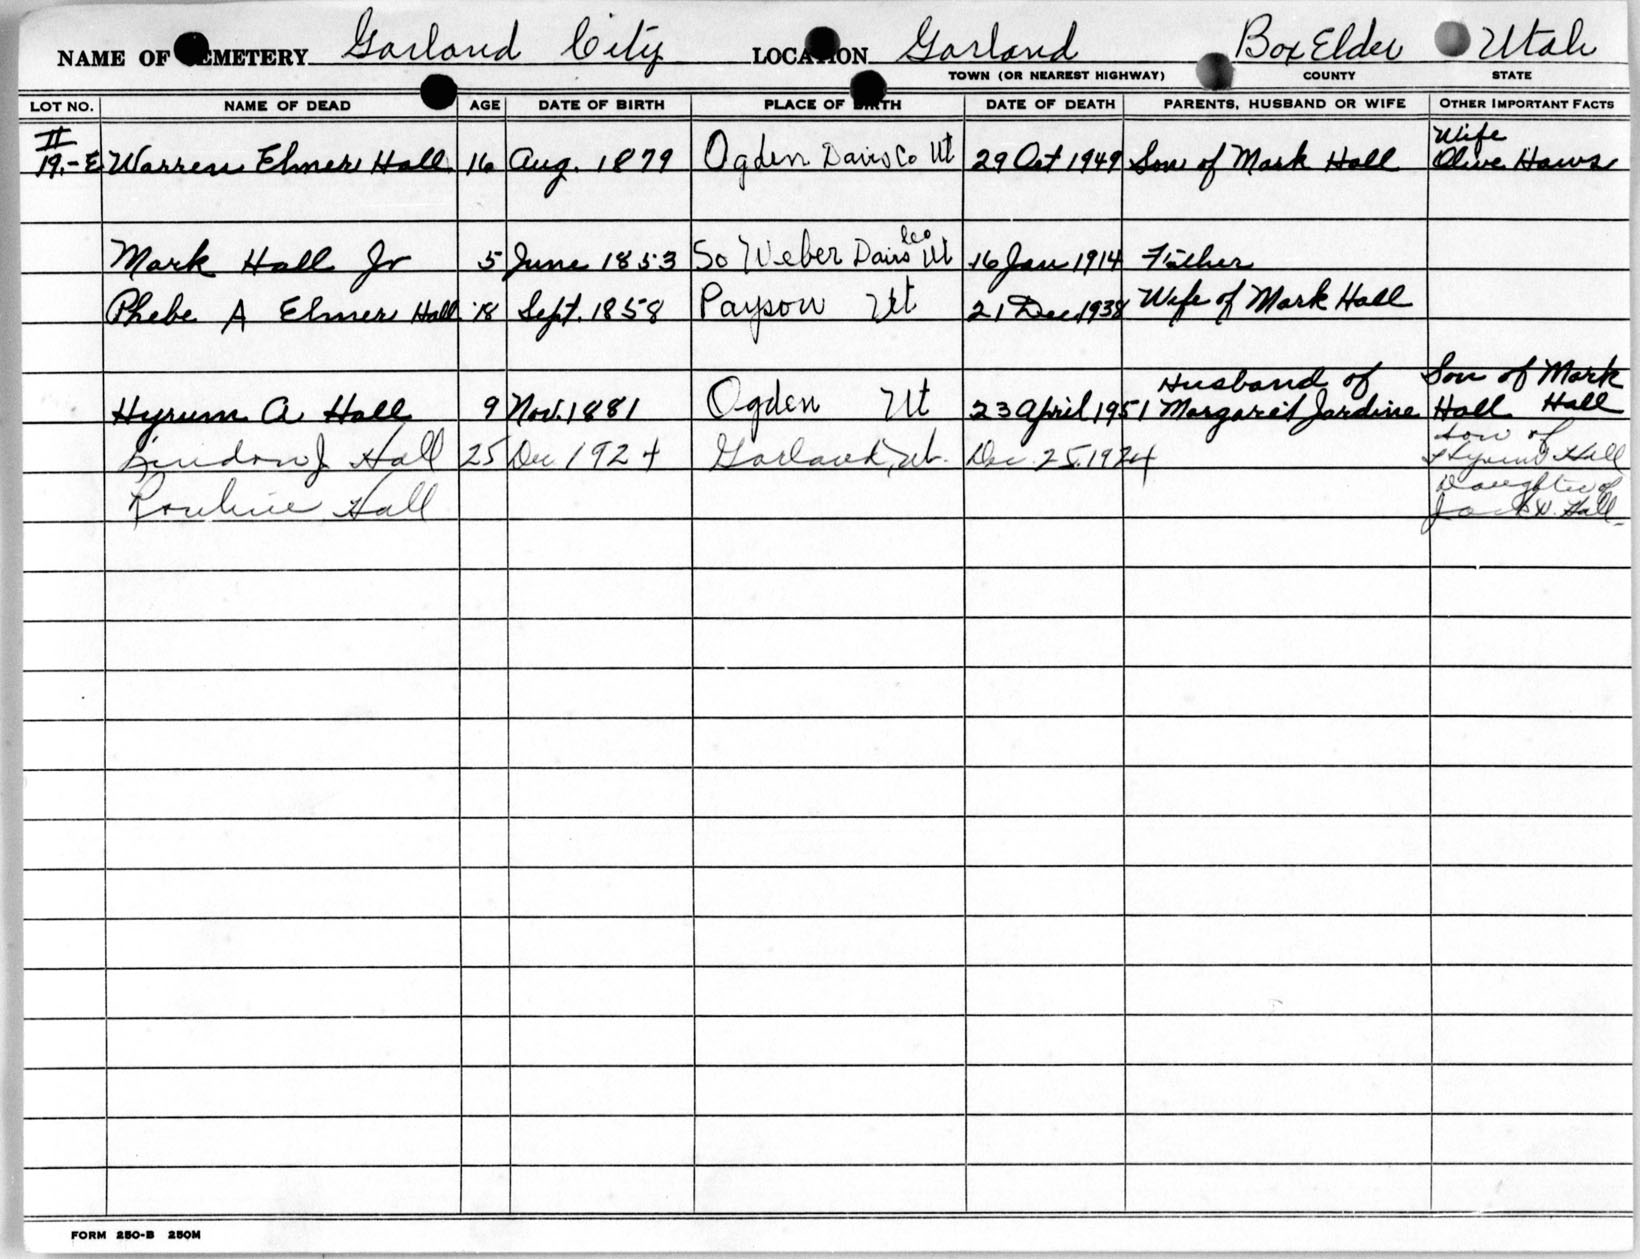 NAME OF CEMETERY Garland City LOCATION Garland Box Elder Utah
TOWN (OR NEAREST HIGHWAY) COUNTY STATE
LOT NO. NAME OF DEAD AGE DATE OF BIRTH PLACE OF BIRTH DATE OF DEATH PARENTS, HUSBAND OR WIFE OTHER IMPORTANT FACTS
II Wife
19.-E Warren Elmer Hall 16 Aug. 1879 Ogden Davis Co Ut 29 Oct 1949 Son of Mark Hall Olive Haws
Mark Hall Jr 5 June 1853 So Weber Davis Co Ut 16 Jan 1914 Father
Phebe A Elmer Hall 18 Sept. 1858 Payson Ut 21 Dec 1938 Wife of Mark Hall
Husband of Son of Mark
Hyrum A Hall 9 Nov. 1881 Ogden Ut 23 April 1951 Margaret Jardine Hall Hall
Son of
Lindon J Hall 25 Dec 1924 Garland, Ut. Dec. 25, 1924 Hyrum Hall
Daughter of
Pauline Hall Jack W. Hall
FORM 250-B 250M